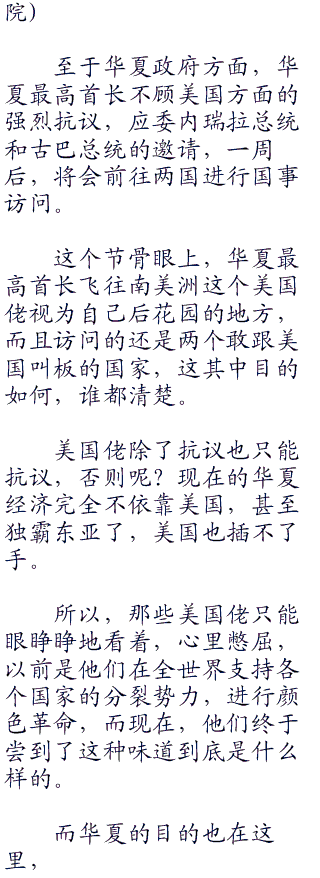 院）
至于华夏政府方面，华
夏最高首长不顾美国方面的
强烈抗议，应委内瑞拉总统
和古巴总统的邀请，一周
后，将会前往两国进行国事
访问。
这个节骨眼上，华夏最
高首长飞往南美洲这个美国
佬视为自己后花园的地方，
而且访问的还是两个敢跟美
国叫板的国家，这其中目的
如何，谁都清楚。
美国佬除了抗议也只能
抗议，否则呢？现在的华夏
经济完全不依靠美国，甚至
独霸东亚了，美国也插不了
手。
所以，那些美国佬只能
眼睁睁地看着，心里憋屈，
以前是他们在全世界支持各
个国家的分裂势力，进行颜
色革命，而现在，他们终于
尝到了这种味道到底是什么
样的。
而华夏的目的也在这
里，